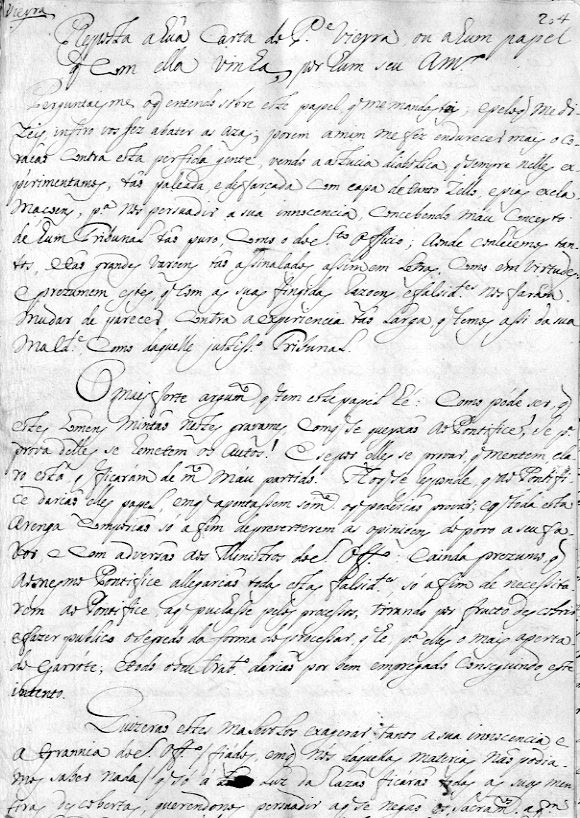 Vieyra
204
Reposta a hũa Carta do P.e Vieyra ou a hum papel
q Com ella vinha, por hum seu Am.o
Perguntasme o q entendo sobre este papel q me mandastes, e pelo q me di
zeis, infiro vos fez abater as azas; porem a mim me fez endurecer mais o Co
raçaõ Contra esta perfida gente, vendo a astucia diabolica q sempre nelles ex
perimentamos, taõ paleada e disfarçada Com capa de tanto Zello, e pias excla
maçoens, p.a nos persuadir a sua innocencia, Concebendo mau Conceyto
de hum Tribunal taõ puro, Como o do S.to Officio; aonde Conhecemos tan
tos, e taõ grandes Varoens taõ assinalados assim em Letras, Como em Virtude,
e prezumem estes q Com as suas fingidas razoens e falsid.es nos faraõ
mudar de parecer Contra a experiencia taõ larga q temos assi da sua
mald.e Como daquelle justiss.o Tribunal.
O mais forte argum.to q tem este papel he: Como póde ser, q
estes homens mintaõ nestes gravames Com q se queixaõ ao Pontifice, se p.a
prova delles se remetem aos Autos! E se por elles se provar q mentem, cla
ro está q ficaráõ de mais mau partido. Ao q se responde, q ao Pontifi
ce dariaõ eles papel em q apontassem som.te o q poderiaõ provar; e q toda esta
arenga Compuzeraõ só a fim de preverterem as opinioens do povo a seu fa
vor e Com adversaõ aos Ministros do S. Off.o E ainda prezumo, q
ao mesmo Pontifice allegariaõ todas estas falsid.es só a fim de necessita
rem ao Pontifice a q puxasse pelos processos, tirando por fructo descobrir
e fazer publico o segredo da forma do processar, q he p.a elles o mais aperta
do Garrote, e todo o seu trab.o dariaõ por bem empregado Conseguindo este
intento.
Quizeraõ estes exagerar tanto a sua innocencia e
a tyrannia do S. Off.o fiados, em q nós daquella materia naõ podia
mos saber nada, q só á luz da razaõ ficáraõ todas as suas men
tiras descobertas, querendonos persuadir a q se negaõ os Sacram.tos a q.m